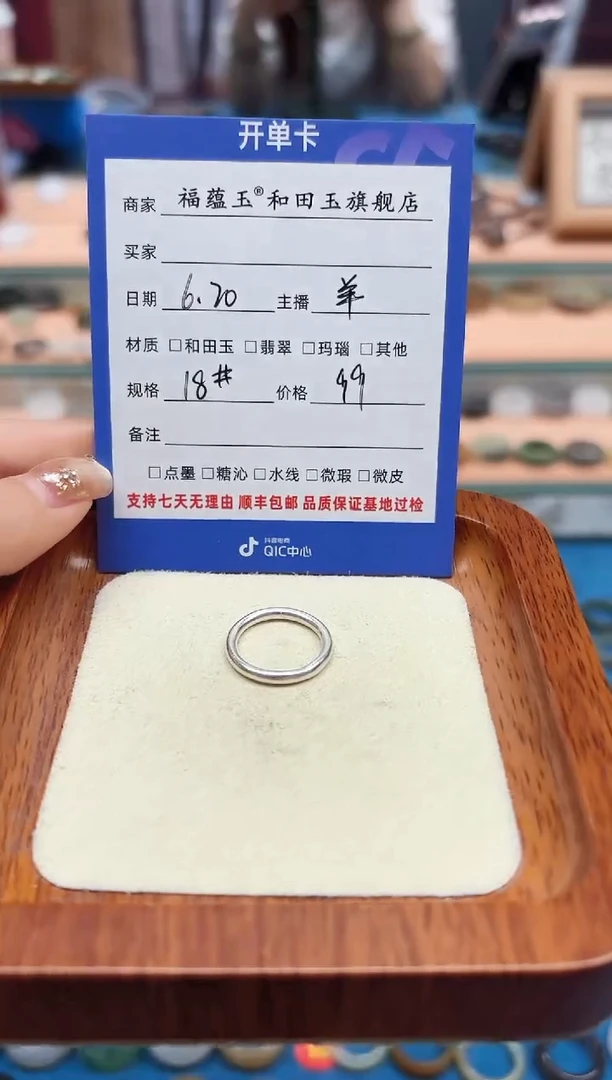 开单卡
商家 福蕴玉®和田玉旗舰店
买家
日期 6.20 主播 羊
材质 □和田玉 □翡翠 □玛瑙 □其他
规格 18# 价格 99
备注
□点墨 □糖沁 □水线 □微瑕 □微皮
支持七天无理由 顺丰包邮 品质保证基地过检
抖音电商
QIC中心